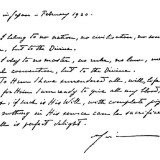 in Japan - February 1920.
I belong to no nation, no civilisation, no society,
but to the Divine.
I obey no master, no rule, no law, no
social convention, but to the Divine.
To Him I have surrendered all, will, life
for Him I am ready to give all my blood,
if such is His Will, with complete joy
nothing in His service can be sacrifice
all is perfect delight.